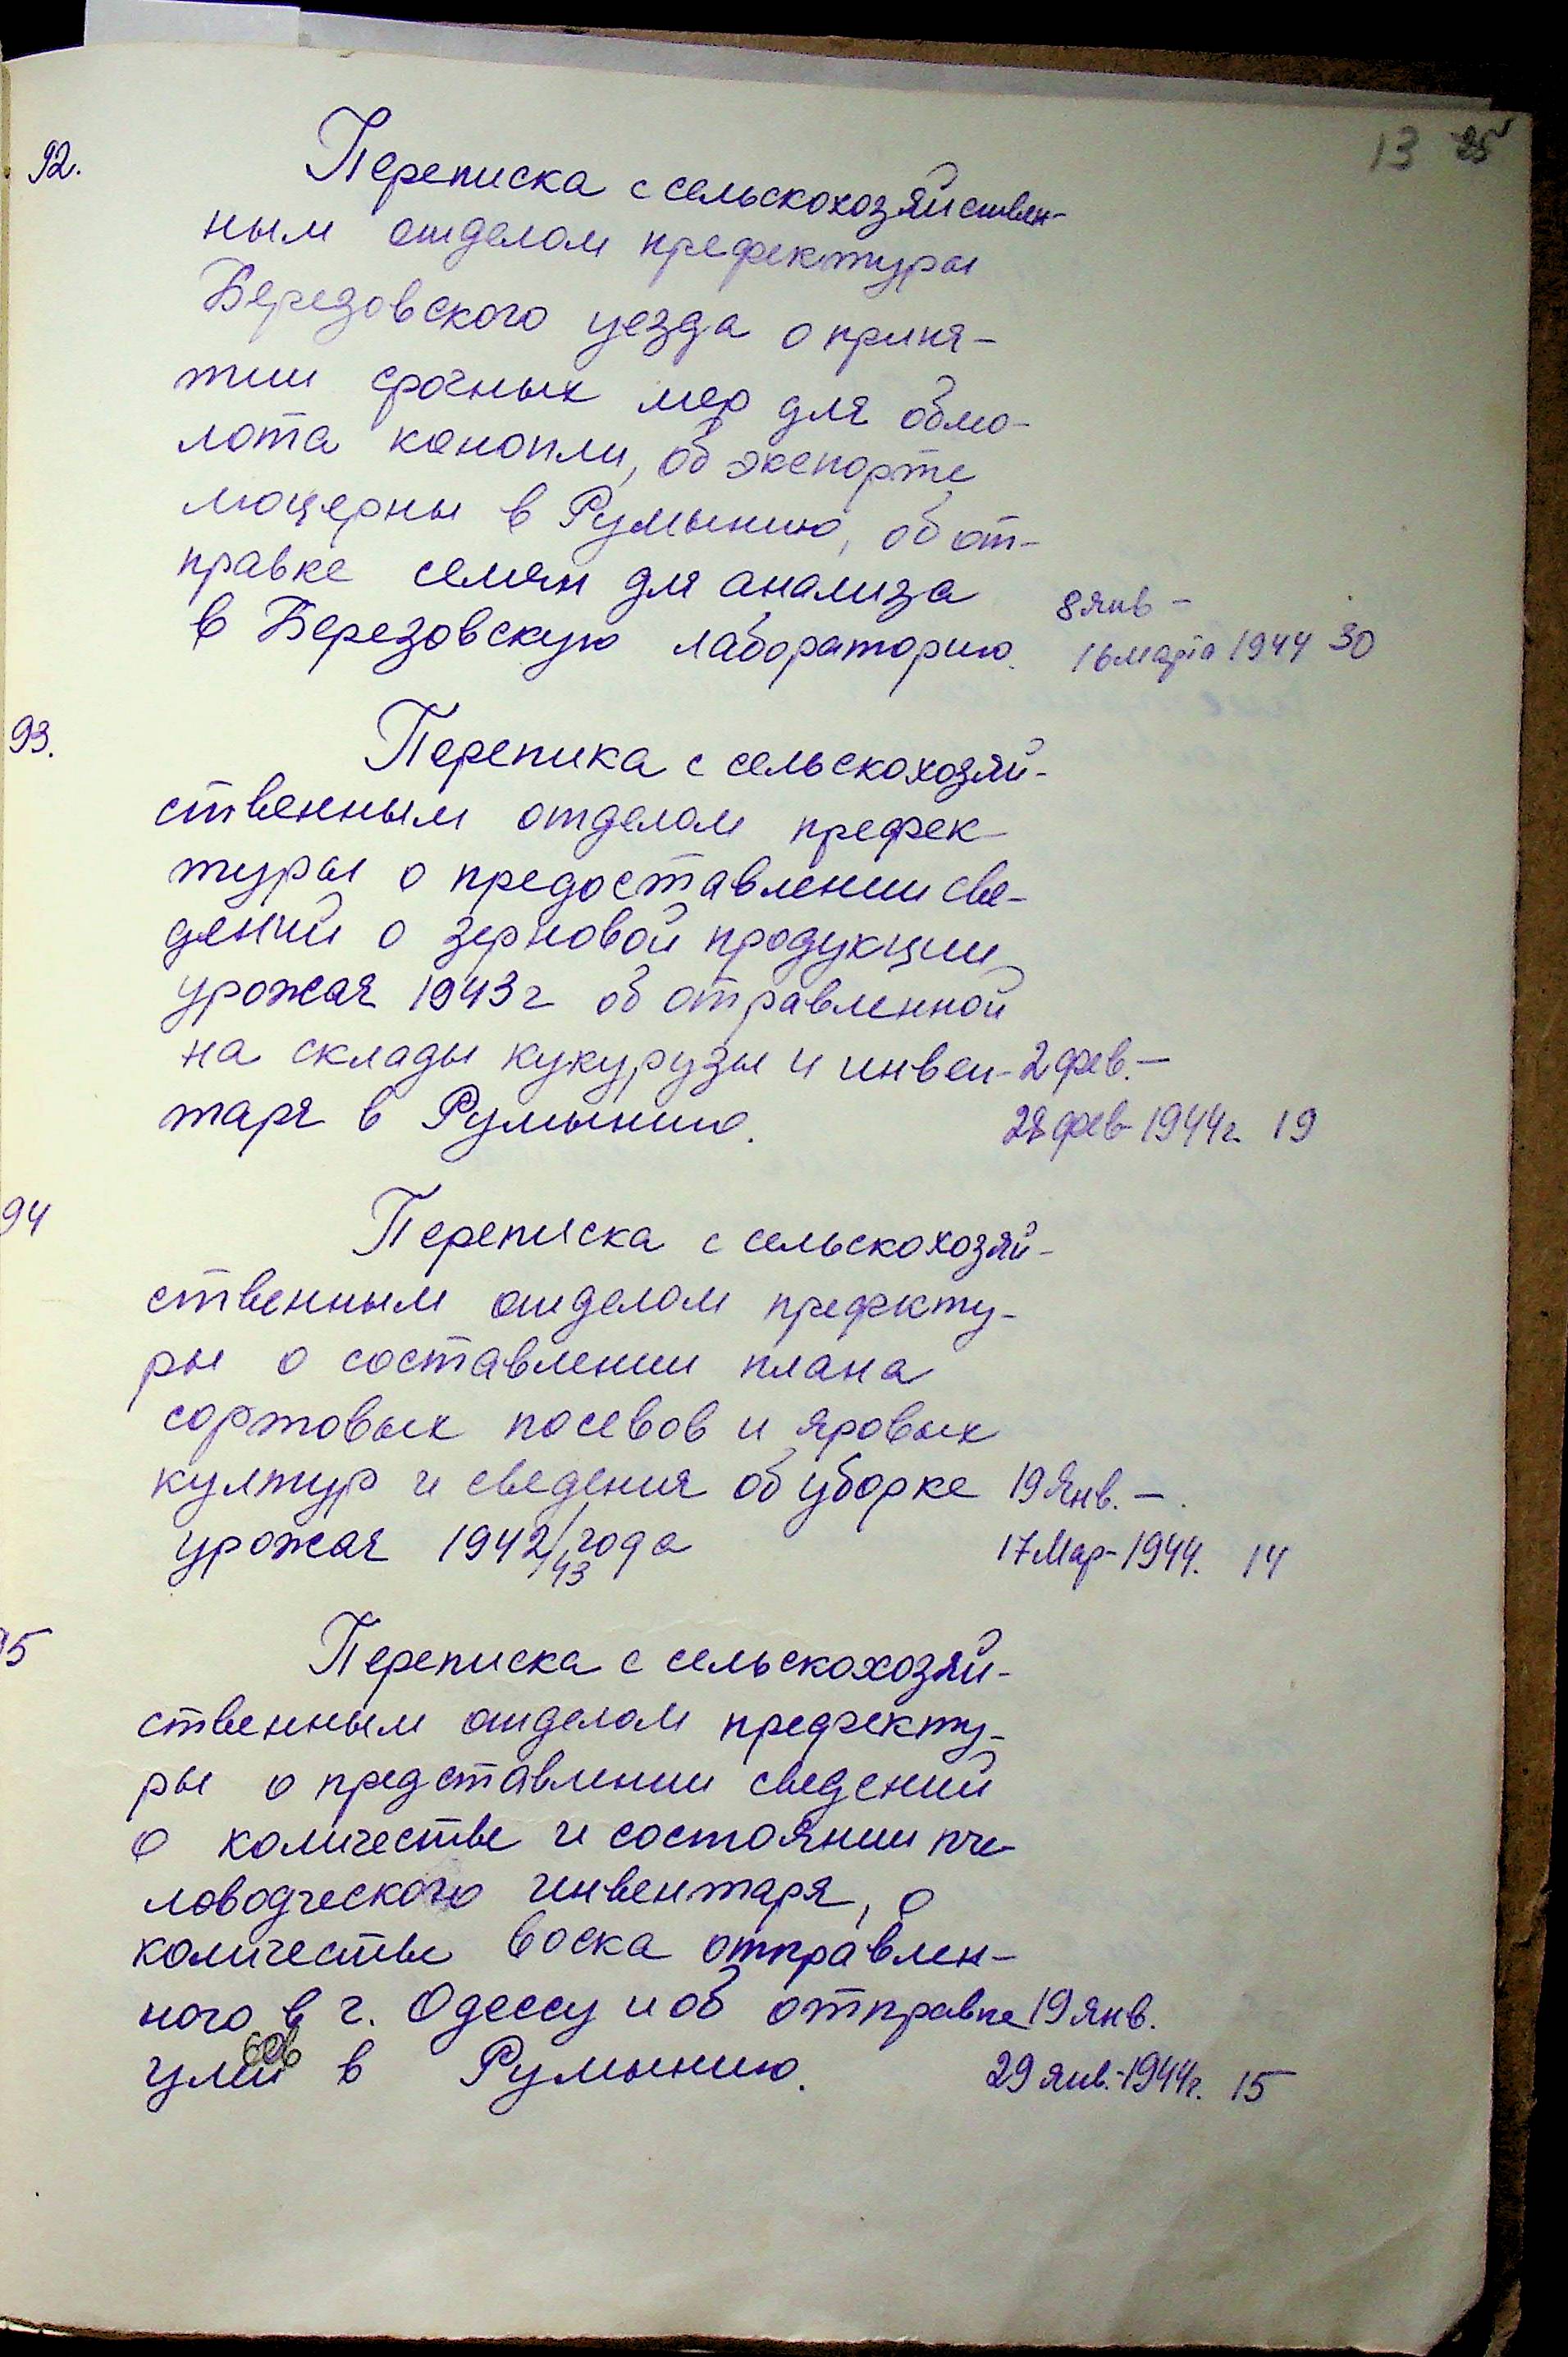 13 25
92. Переписка с сельскохозяйствен-
ным отделом префектуры
Березовского уезда о приня-
тии срочных мер для обмо-
лота конопли, об экспорте
люцерны в Румынию, об от-
правке семян для анализа
8 янв -
в Березовскую лабораторию. 16 марта 1944 30
93. Перепика с сельскохозяй-
ственным отделом префек-
туры о предоставлении све-
дений о зерновой продукции
урожая 1943 г об отравленной
на склады кукурузы и инвен- 2 фев. -
таря в Румынию. 28 фев - 1944 г. 19
94 Переписка с сельскохозяй-
ственным отделом префкту-
ры о составлении плана
сортовых посевов и яровых
култур и сведения об уборке 19 Янв. -.
урожая 1942/43 года 17 Мар - 1944. 14
95 Переписка с сельскохозяй-
ственным отделом префекту-
ры о представлении сведений
о количестве и состоянии пче-
ловодческого инвентаря, о
количестве воска отправлен-
ного в г. Одессу и об отправке 19 янв.
ульев в Румынию. 29 янв. - 1944 г. 15